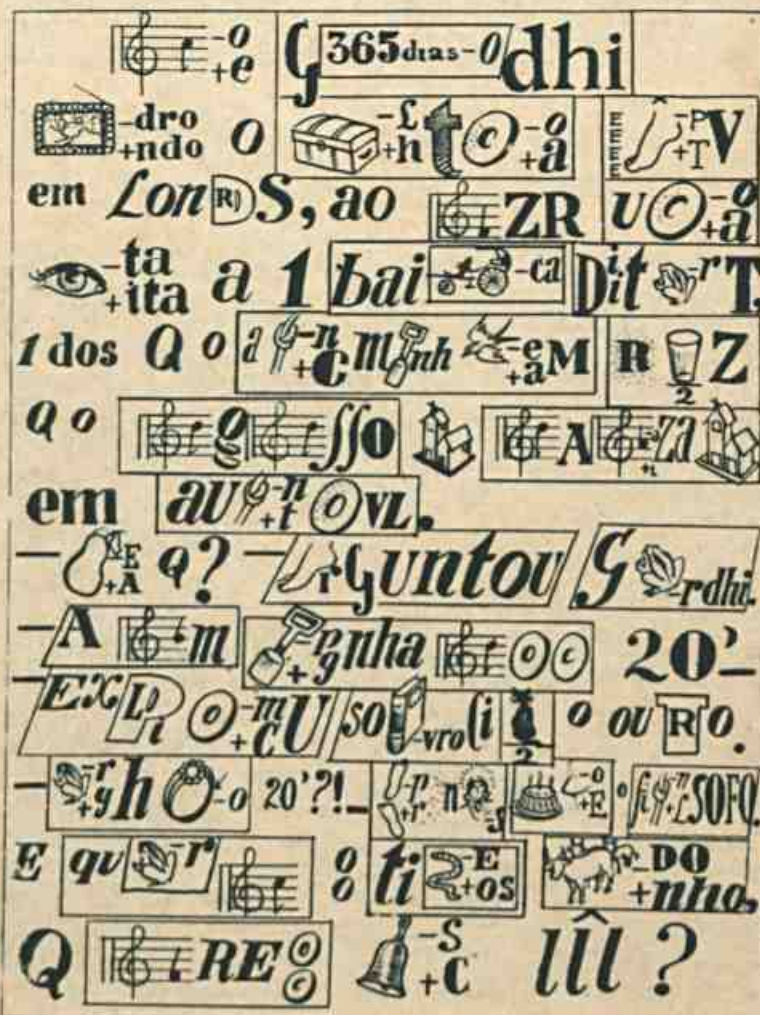 -o +e G 365 dias -O dhi
-dro +ndo O -L +h t C -o +a -P +T V
em LonRDS, ao ZR U C -o +a
-ta +ita a 1 bai -ca Diit -r T,
1 dos Q O a -n +C m nh -e +a M R 2 Z
Q O g sso A +i za
em au -n +t VL.
- -E +A Q? - r Guntou G -rdhi.
-A m -p +g nha C 20'-
-EXLPi -m +c U so -vro Ci 2 O OU R O.
- -r +g h -o 20'?!- -p +r n s -o +E o fi -n +L SOFO.
E qu -r o o ti -E +OS -DO +nho,
Q RE C -S +C lîl ?